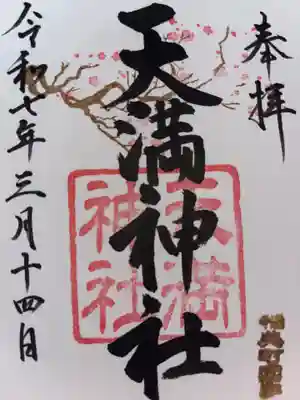 奉拝
天満神社
天満神社
令和七年三月十四日